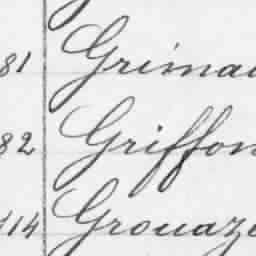 81 Grimau
82 Griffon
114 Grouaze